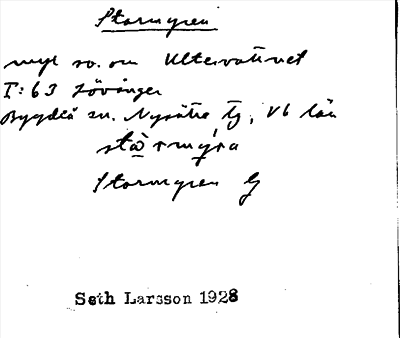 Stormyren
myr so. om Ultervattnet
I:63 Lövånger
Bygdeå sn. Nysätra tg, Vb län
stà̱rmýra
Stormyren G
Seth Larsson 1928